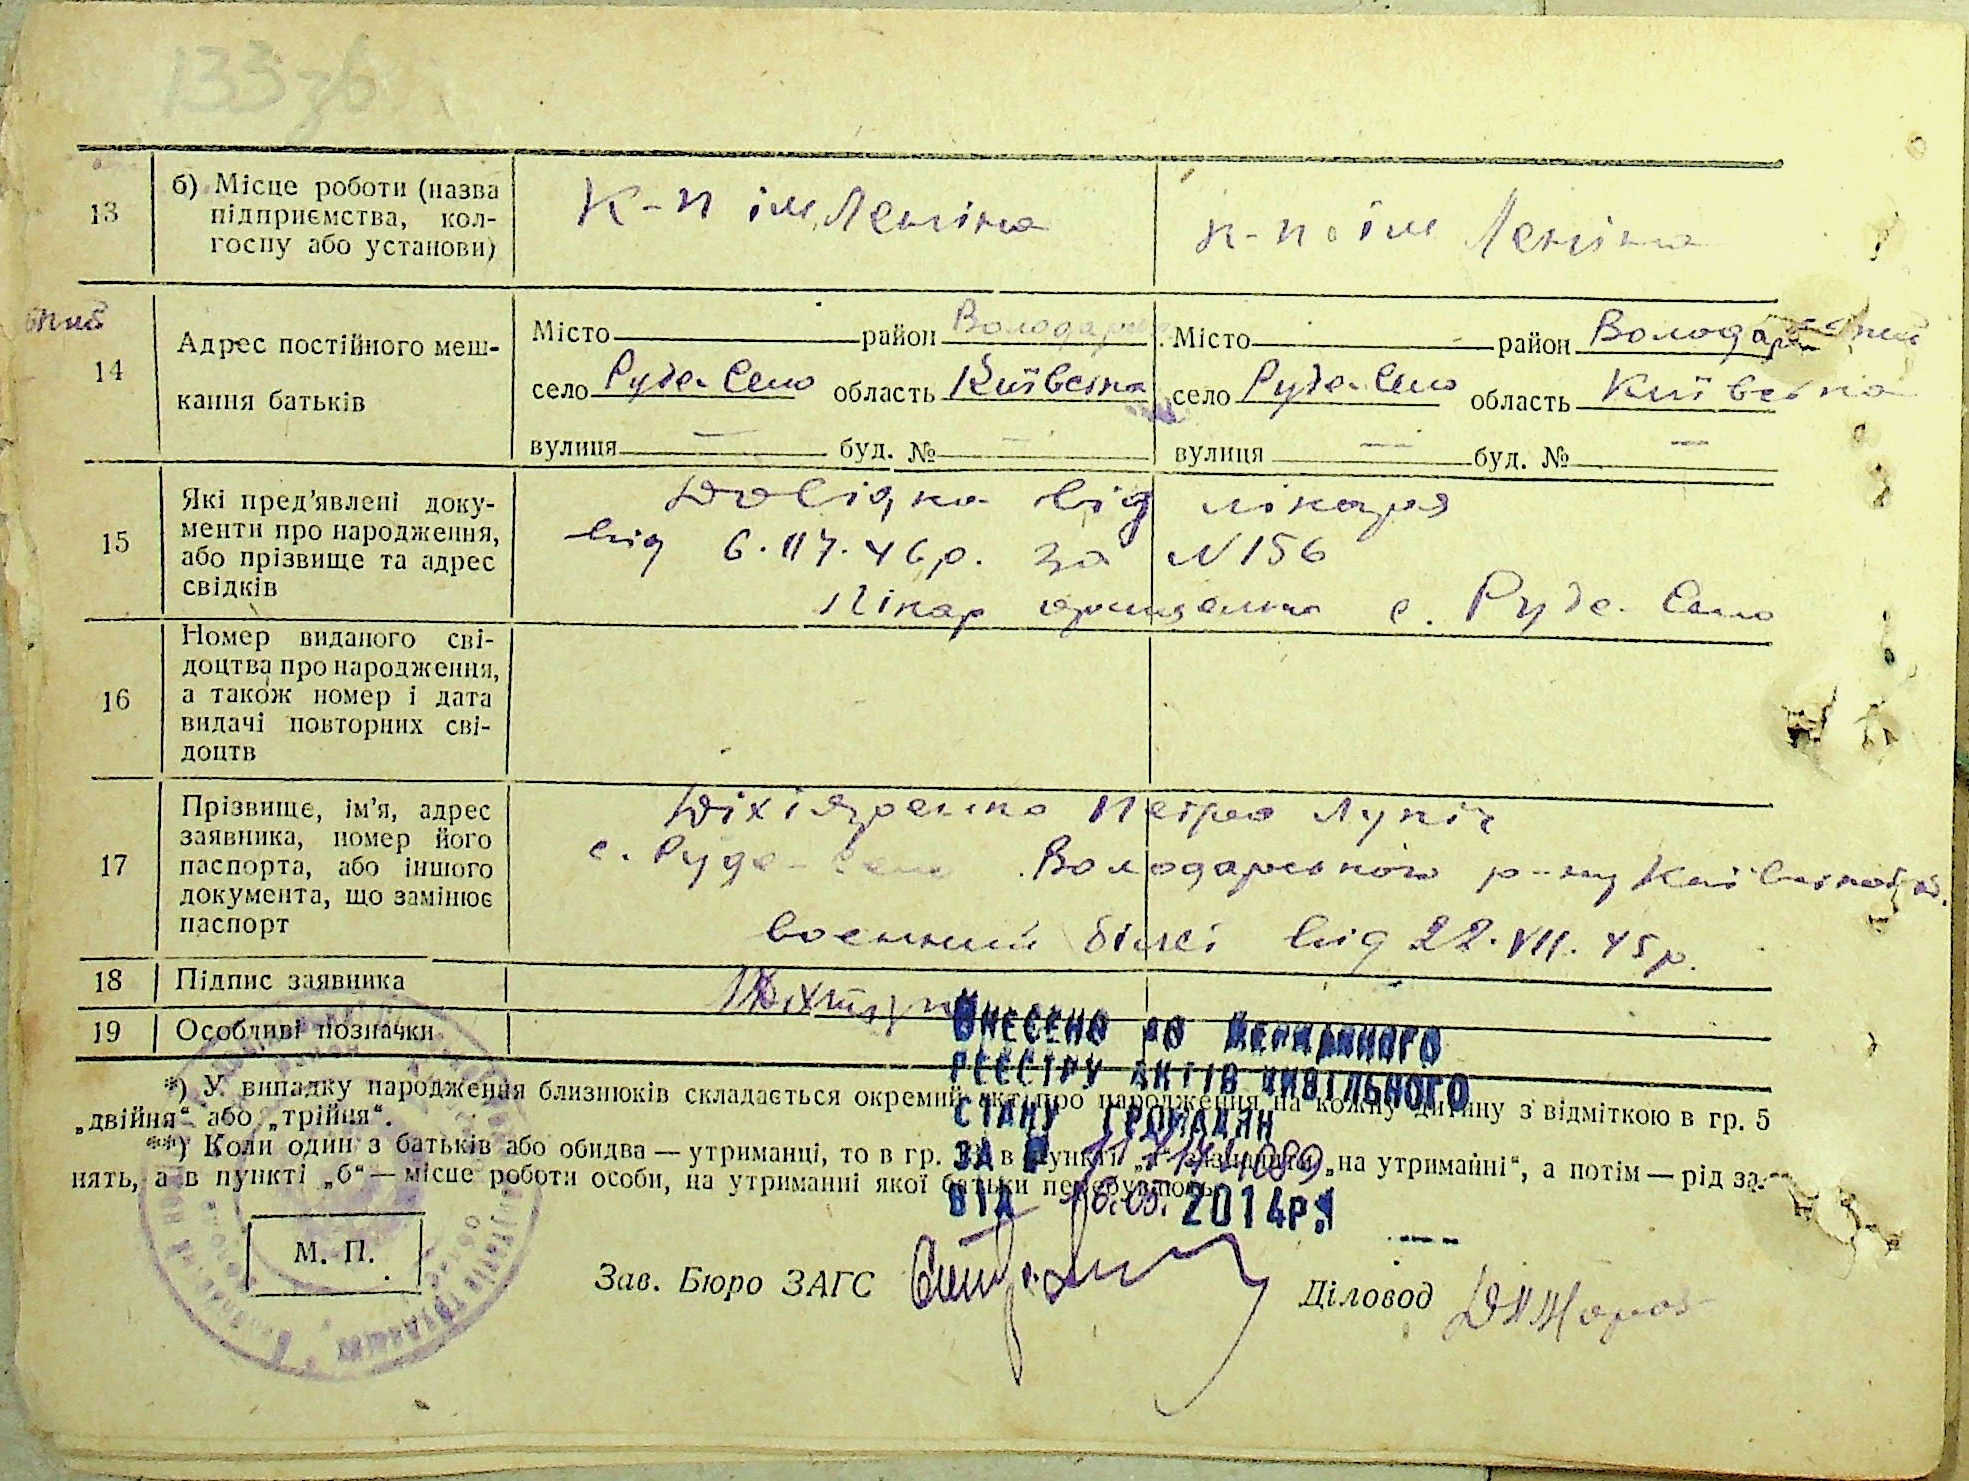 133 зв
13
б) Місце роботи (назва
підприємства, кол-
госпу або установи)
к-п ім Леніна
к-п ім Леніна
14
Адрес постійного меш-
кання батьків
Місто район Володар
село Руде-Село область Київська
вулиця — буд. № —
Місто район Володарський
село Руде-Село область Київська
вулиця — буд. № —
15
Які пред'явлені доку-
менти про народження,
або прізвище та адрес
свідків
Довідка від лікаря
від 6.IV.46р. за N 156
Лікар с. Руде-Село
16
Номер виданого сві-
доцтва про народження,
а також номер і дата
видачі повторних сві-
доцтв
17
Прізвище, ім'я, адрес
заявника, номер його
паспорта, або іншого
документа, що замінює
паспорт
Петро Лукіч
с. Руде-Село Володарського р-ну
воєнний білєт від 22.VII.45р.
18
Підпис заявника
19
Особливі позначки
ВНЕСЕНО ДО ДЕРЖАВНОГО
РЕЄСТРУ АКТІВ ЦИВІЛЬНОГО
СТАНУ ГРОМАДЯН
ЗА №
ВІД 2014р.
*) У випадку народження близнюків складається окремий акт про народження на кожну дитину з відміткою в гр. 5
„двійня“ або „трійня“.
**) Коли один з батьків або обидва — утриманці, то в гр. в пункті „на утриманні“, а потім — рід за-
нять, а в пункті „б“ — місце роботи особи, на утриманні якої батьки перебувають.
М. П.
Зав. Бюро ЗАГС
Діловод